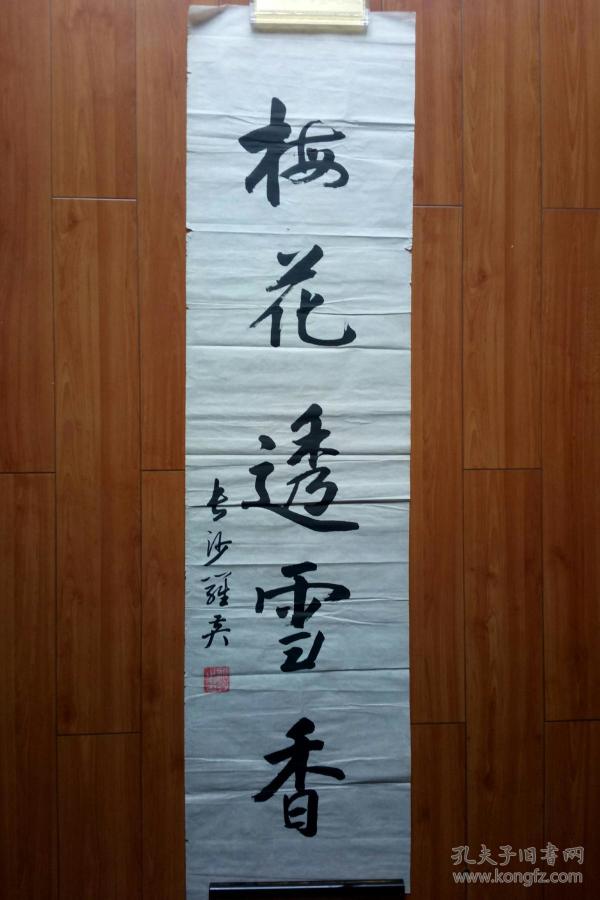 梅花透雪香
长沙羅英
孔夫子旧書网
www.kongfz.com